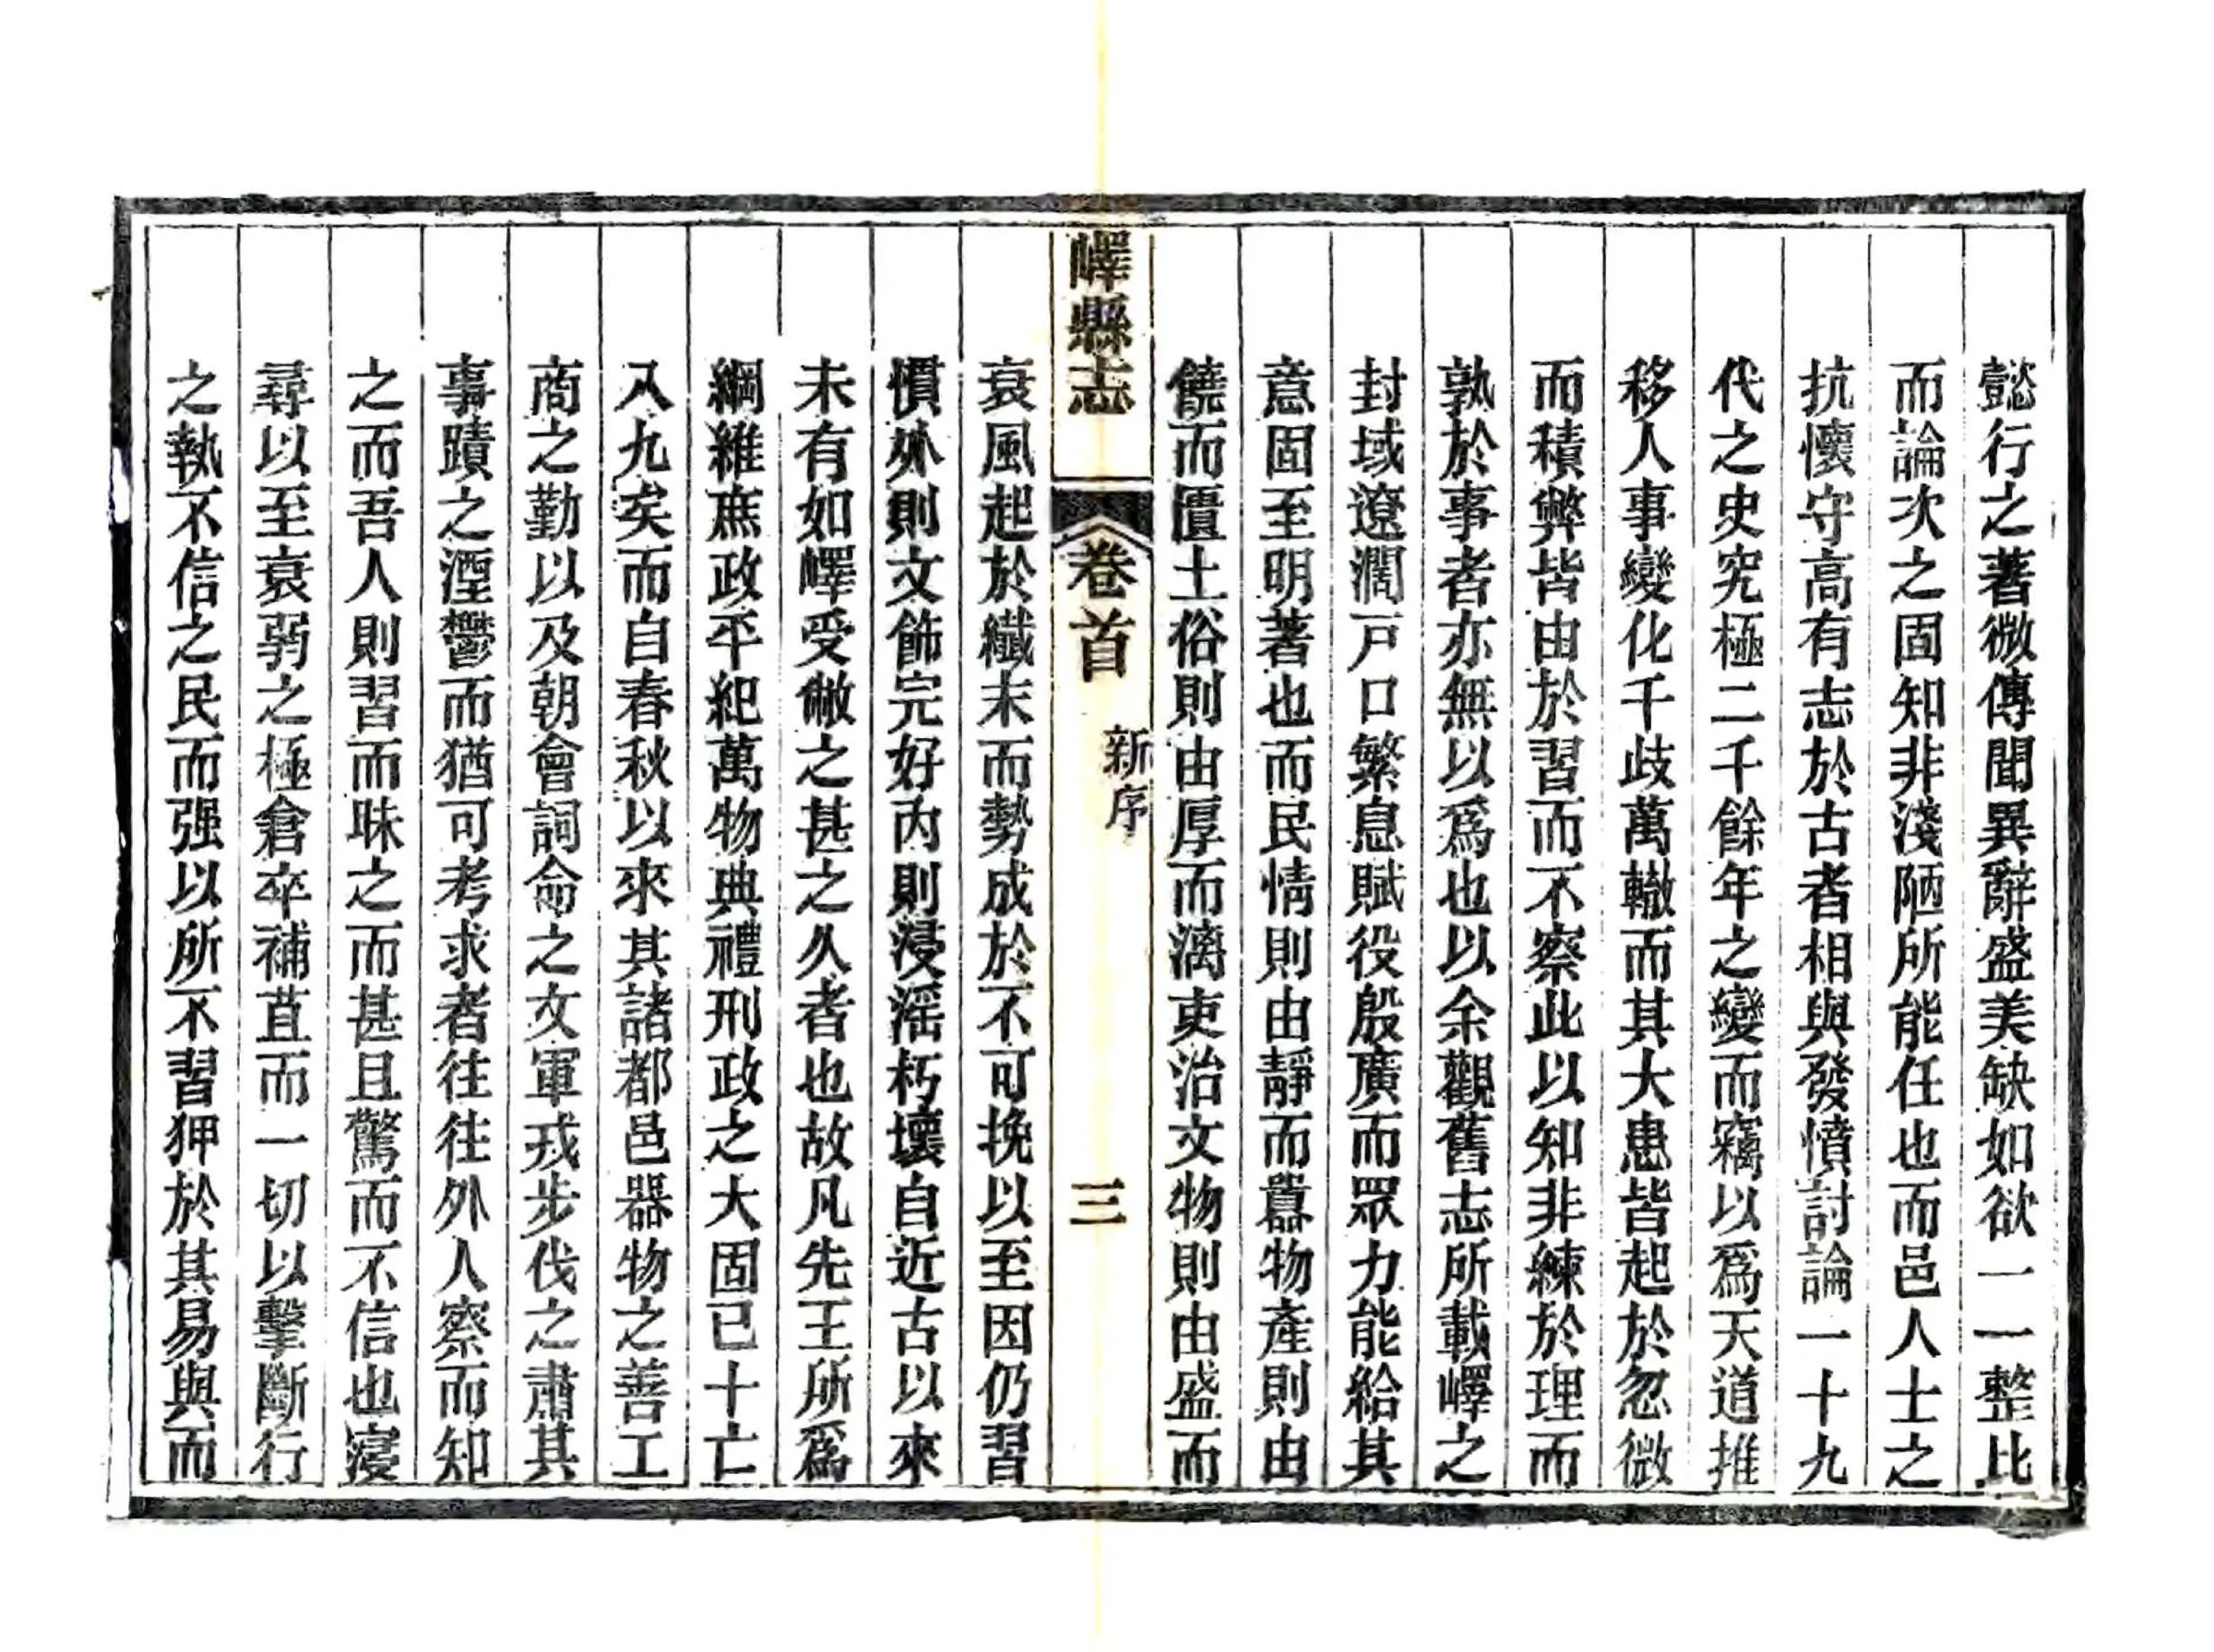 懿行之著微傳聞異辭盛美缺如欲一一整比
而論次之固知非淺陋所能任也而邑人士之
抗懷守高有志於古者相與發憤討論一十九
代之史究極二千餘年之變而竊以爲天道推
移人事變化千歧萬轍而其大患皆起於忽微
而積弊皆由於習而不察此以知非練於理而
孰於事者亦無以爲也以余觀舊志所載嶧之
封域遼濶戸口繁息賦役殷廣而眾力能給其
意固至明著也而民情則由靜而囂物產則由
饒而匱土俗則由厚而漓吏治文物則由盛而
嶧縣志
卷首
新序
三
衰風起於纖末而勢成於不可挽以至因仍習
慣外則文飾完好內則浸滛朽壞自近古以來
未有如嶧受敝之甚之久者也故凡先王所爲
綱維庶政平紀萬物典禮刑政之大固已十亡
八九矣而自春秋以來其諸都邑器物之善工
商之勤以及朝會詞命之文軍戎步伐之肅其
事蹟之湮鬱而猶可考求者往往外人察而知
之而吾人則習而昧之而甚且驚而不信也寖
尋以至衰弱之極倉卒補苴而一切以擊斷行
之執不信之民而强以所不習狎於其易與而